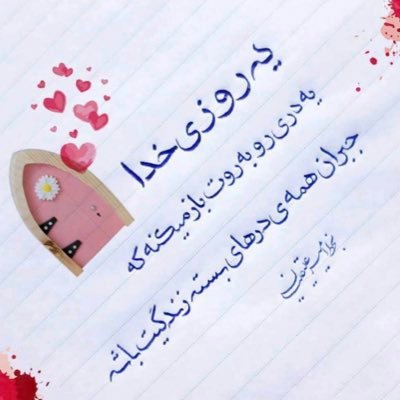 یه روزی خدا
یه دری رو به روت باز میکنه که
جبران همه ی درهای بسته زندگیت باشه